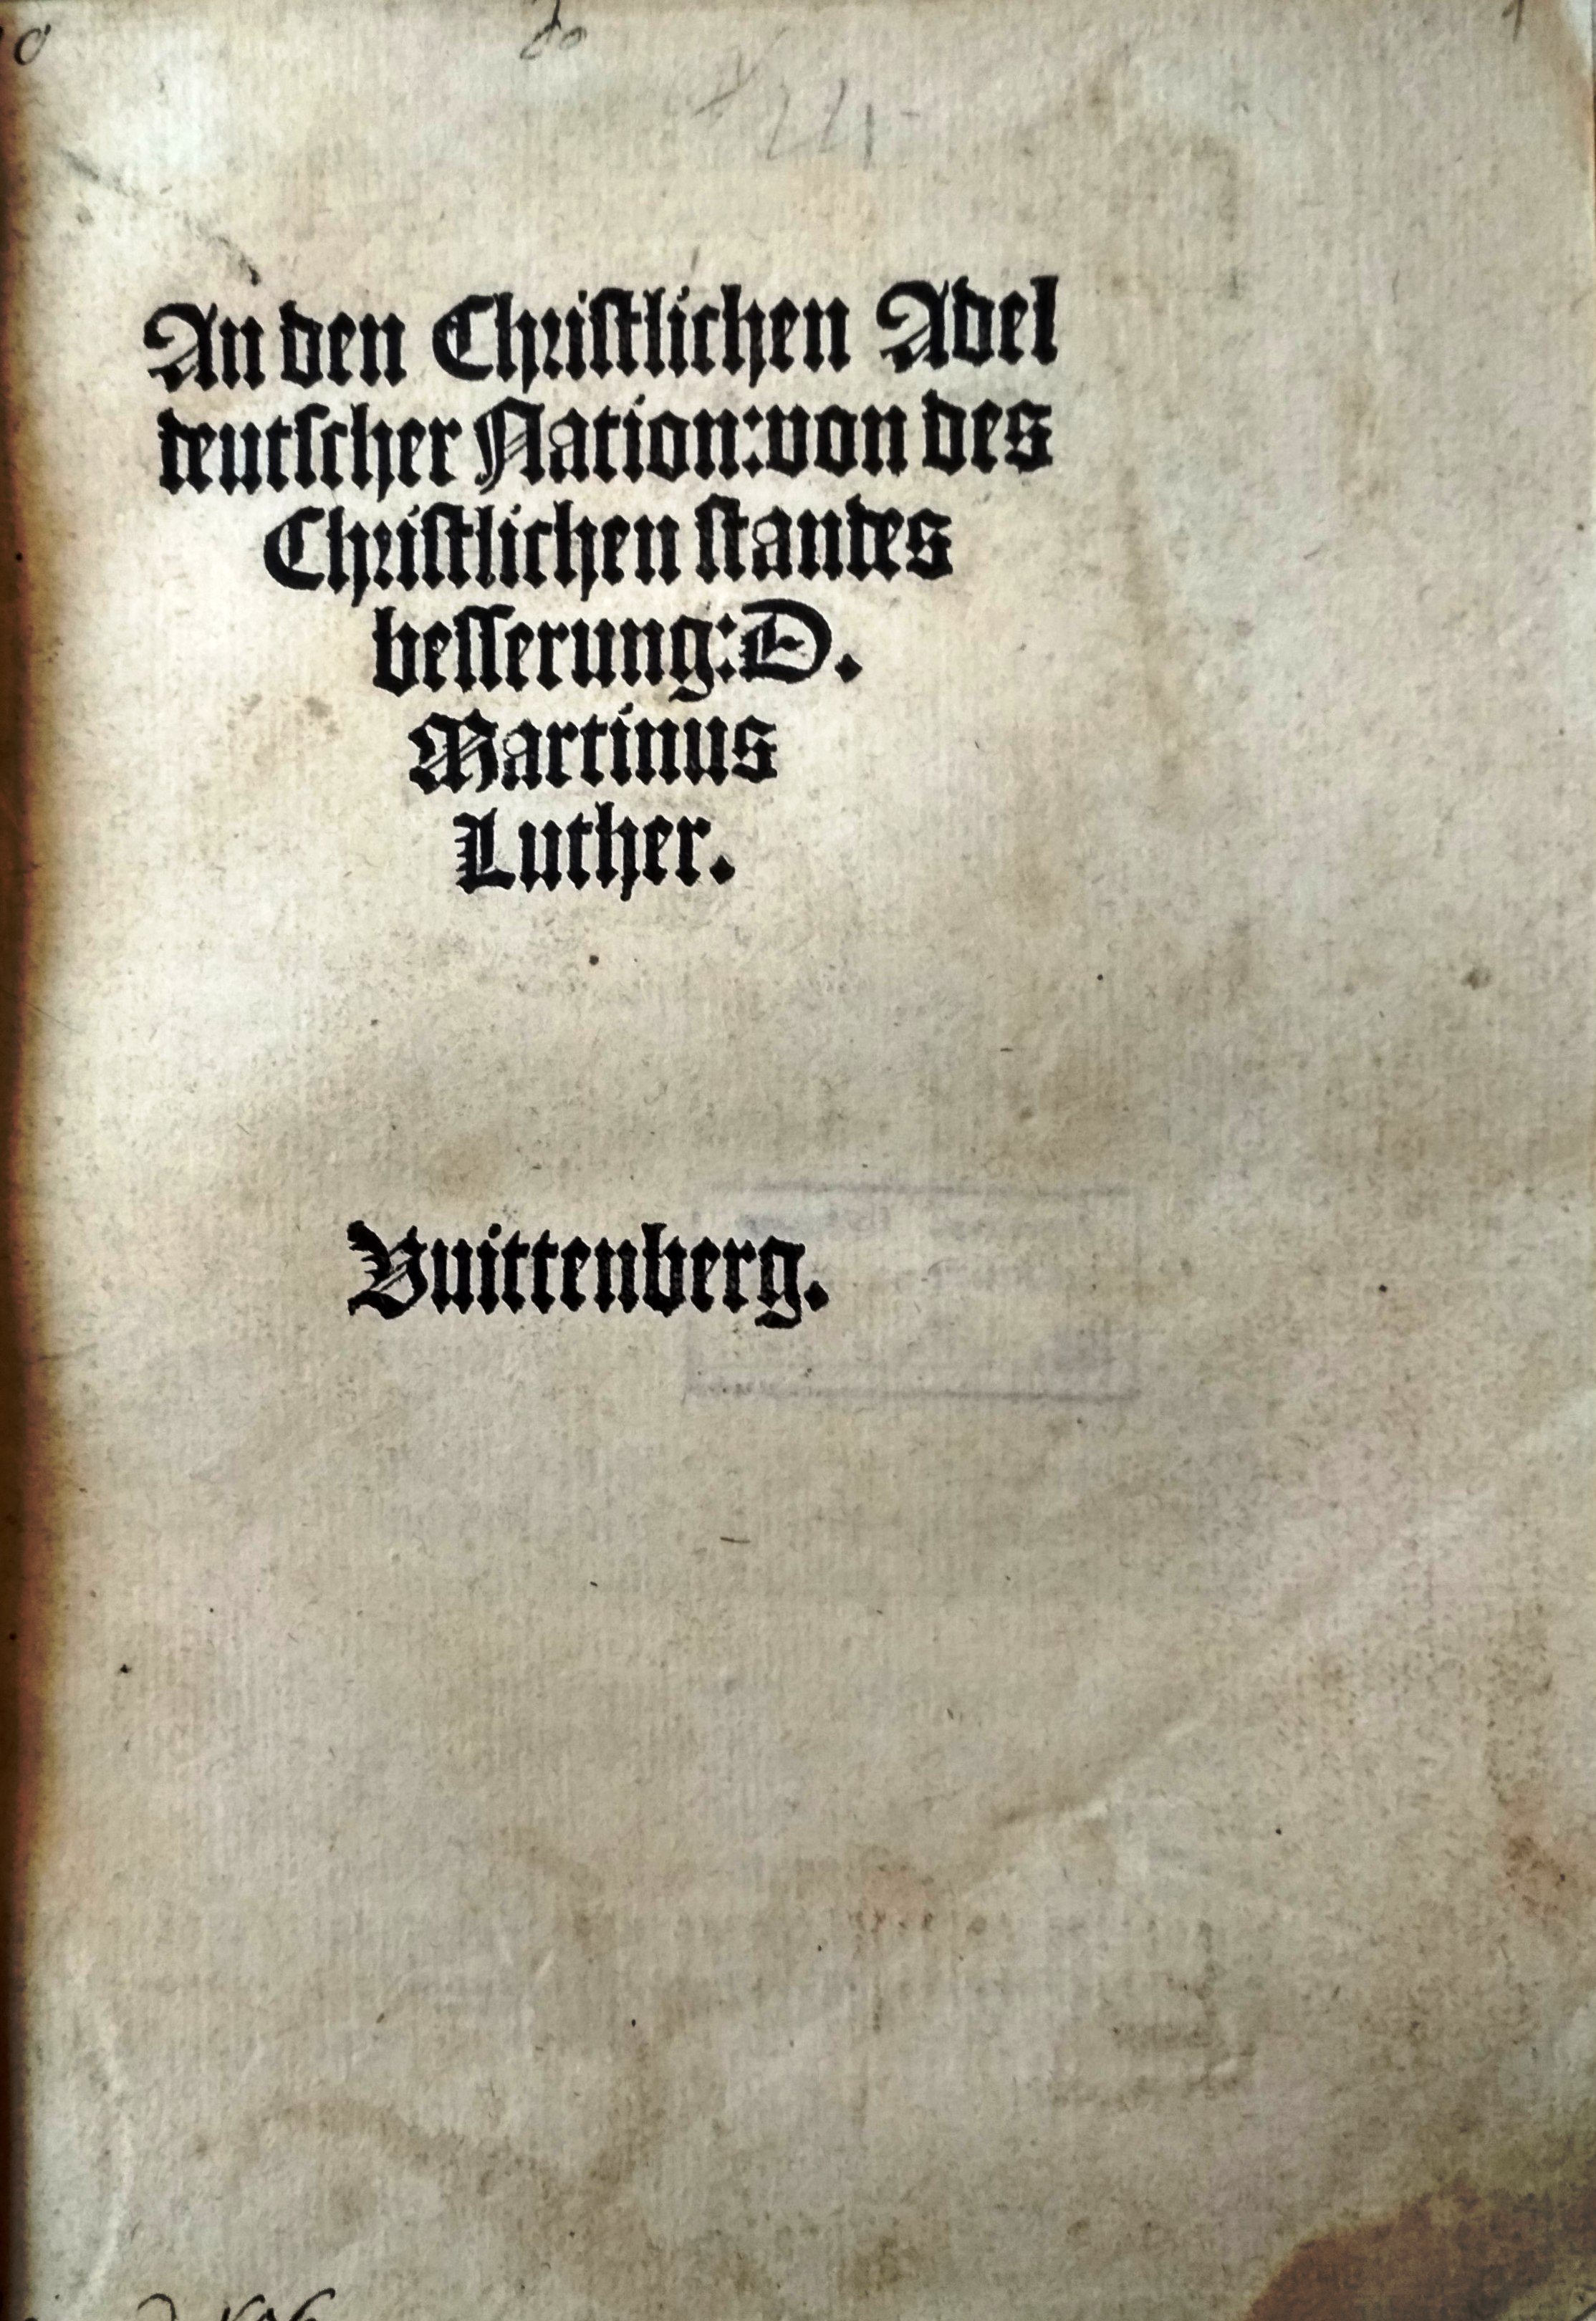 An den Christlichen Adel
deutscher Nation:von des
Christlichen standes
besserung:D.
Martinus
Luther.
Vuittenberg.